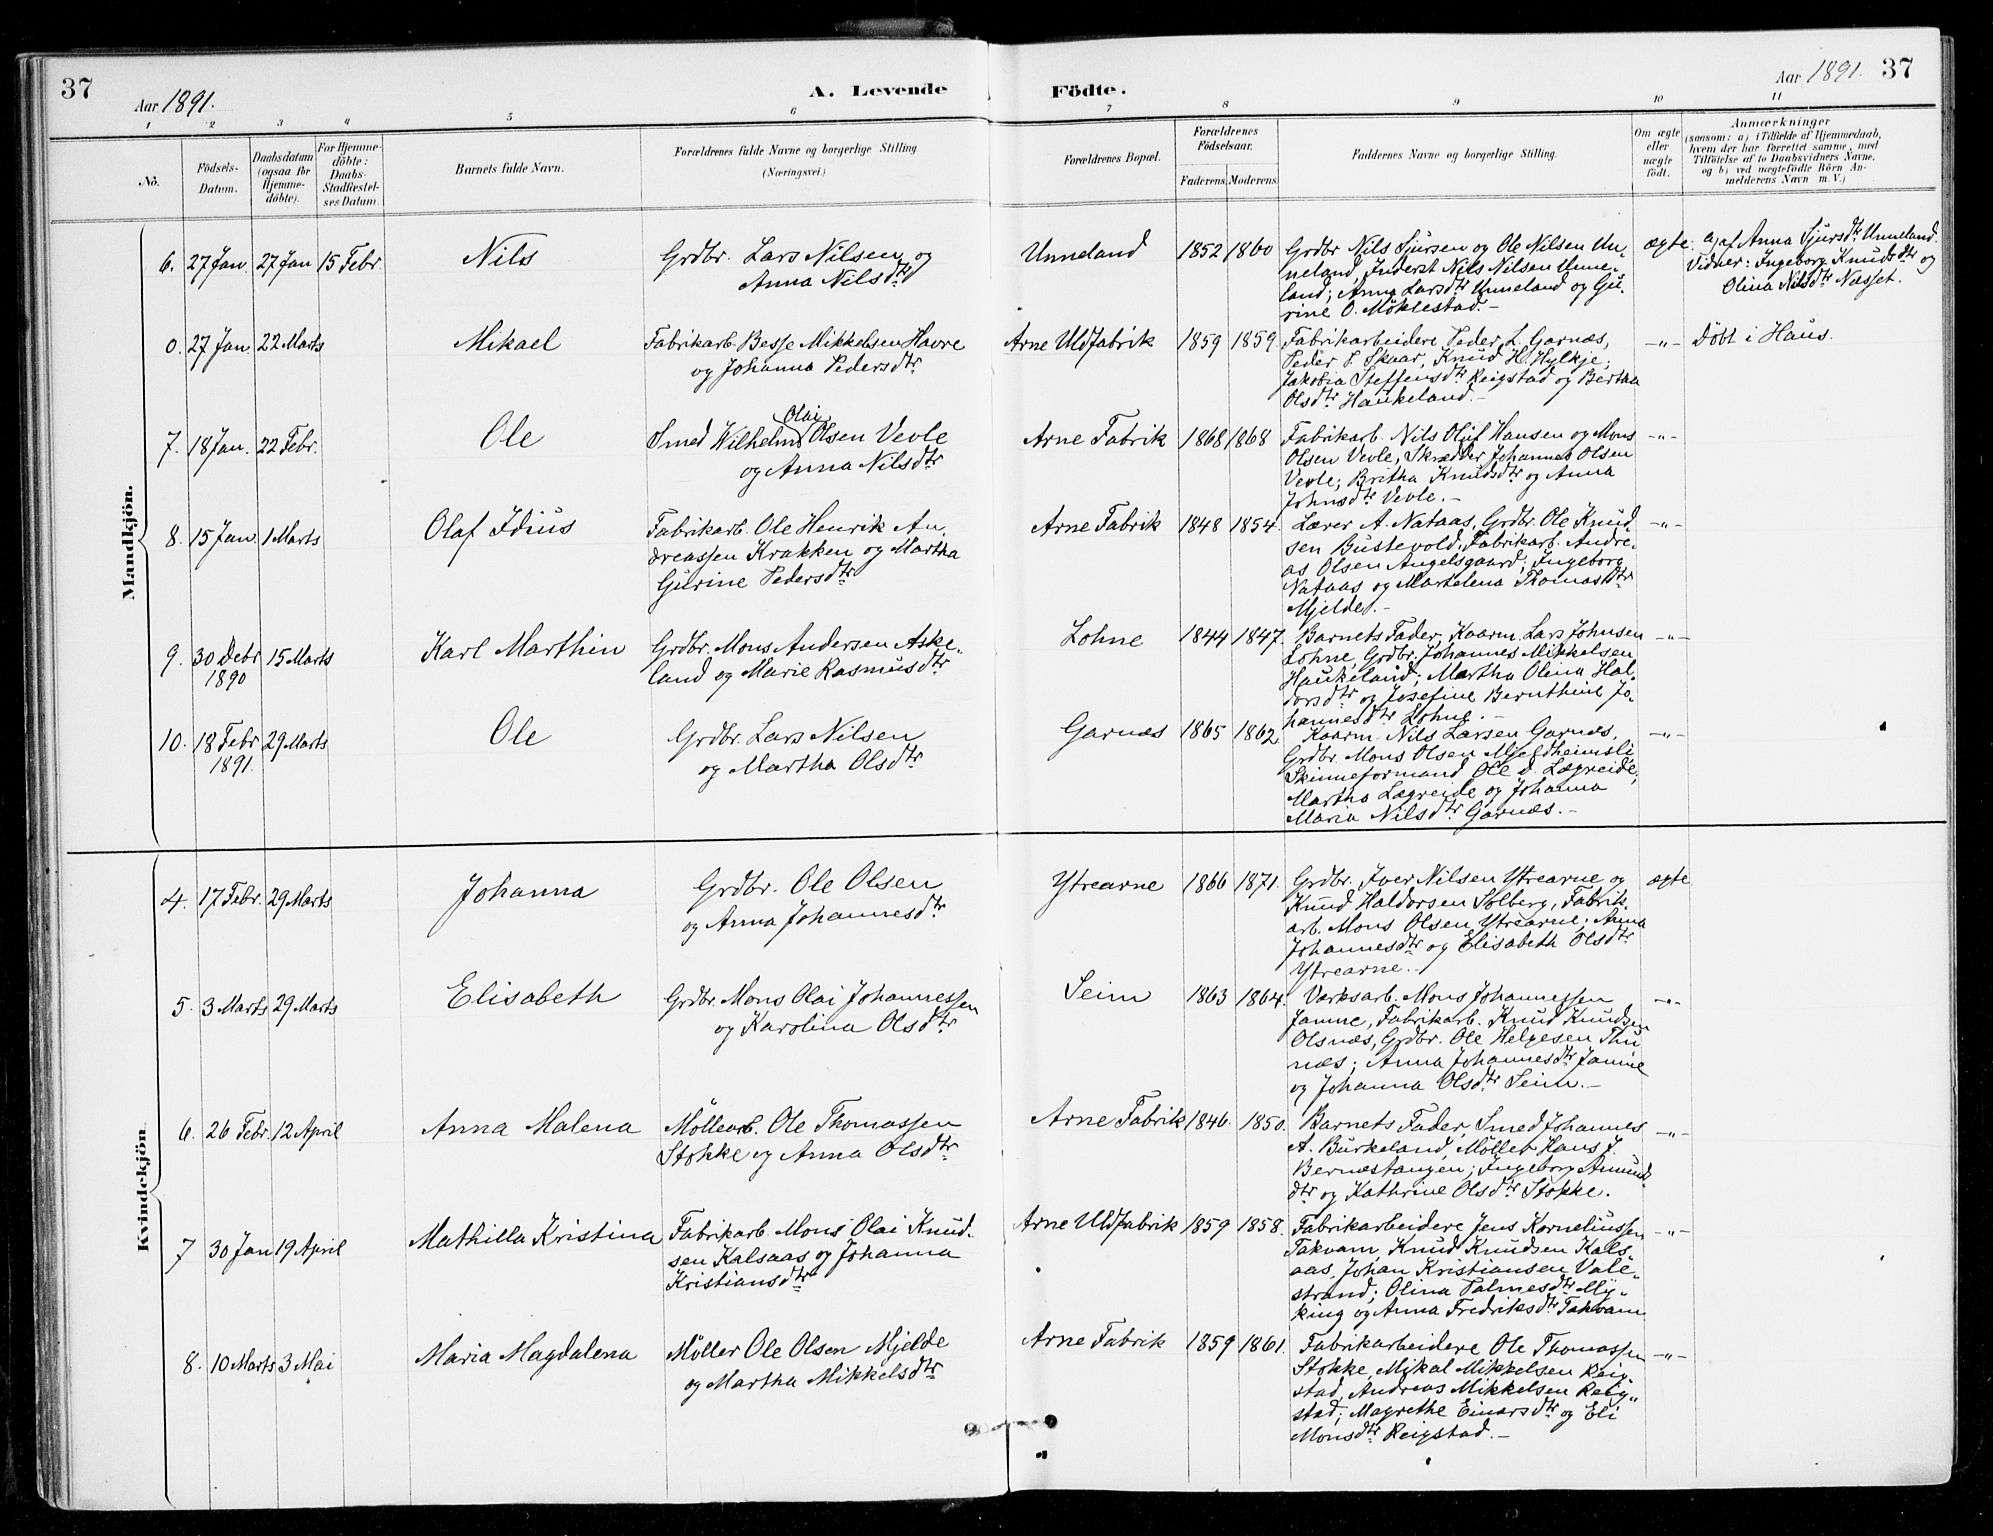 37
Aar 1891.
A. Levende Födte.
Aar 1891. 37
1 2 3 4 5 6 7 8 9 10 11
No.
Födsels-
Datum.
Daabsdatum
(ogsaa for
Hjemme-
döbte).
For Hjemme-
döbte:
Daabs-
Stadfæstel-
ses Datum.
Barnets fulde Navn.
Forældrenes fulde Navne og borgerlige Stilling.
(Næringsvei.)
Forældrenes Bopæl.
Forældrenes
Födselsaar.
Faderens. Moderens.
Faddernes Navne og borgerlige Stilling.
Om ægte
eller
uægte
födt.
Anmærkninger
(saasom: a) i Tilfælde af Hjemmedaab,
hvem der har forrettet samme, med
Tilföielse af to Daabsvidners Navne,
og b) ved uægtefödte Börn An-
melderens Navn m. V.)
Mandkjön.
6. 27 Jan 27 Jan 15 Febr. Nils
Grdbr. Lars Nilsen og
Anna Nilsdtr
Unneland 1852 1860
Grdbr Nils Sjursen og Ole Nilsen Un-
neland, Inderst Nils Nilsen Unne-
land; Anna Larsdtr Unneland og Gu-
rine O. Möklestad.-
ægte.
a) af Anna Sjursdtr Unneland.
Vidner: Ingeborg Knudsdtr og
Olina Nilsdtr Næsset.
0. 27 Jan. 22 Marts Mikael
Fabrikarb. Besse Mikkelsen Havre
og Johanna Pedersdtr
Arne Uldfabrik 1859 1859.
Fabrikarbeidere Peder L. Garnæs,
Peder P. Skaar, Knud H. Hylkje;
Jakobia Steffensdtr Reigstad og Bertha
Olsdtr Haukeland.-
-"- Döbt i Haus.
7. 18 Jan. 22 Febr. Ole
Smed Wilhelm Olai Olsen Vevle
og Anna Nilsdtr
Arne Fabrik 1868 1868
Fabrikarb. Nils Oluf Hansen og Mons
Olsen Vevle, Skrædder Johannes Olsen
Vevle; Britha Knudsdtr og Anna
Johnsdtr Vevle.-
-"-
8. 15 Jan. 1 Marts Olaf Idius
Fabrikarb. Ole Henrik An-
dreassen Krakken og Martha
Gurine Pedersdtr
Arne Fabrik 1848 1854.
Lærer A. Nataas, Grdbr. Ole Knud-
sen Bustevold, Fabrikarb. Andre-
as Olsen Angelsgaard; Ingeborg
Nataas og Martelena Thomasdtr
Mjelde.-
-"-
9. 30 Debr 1890 15 Marts Karl Marthin
Grdbr. Mons Andersen Aske-
land og Marie Rasmusdtr
Lohne 1844 1847.
Barnets Fader, Kaarm. Lars Johnsen
Lohne, Grdbr. Johannes Mikkelsen
Haukeland; Martha Olina Hal-
dorsdtr og Josefine Bernthine Jo-
hannesdtr Lohne.-
-"-
10. 18 Febr 1891. 29 Marts Ole
Grdbr. Lars Nilsen
og Martha Olsdtr
Garnæs 1865 1862
Kaarm. Nils Larsen Garnæs,
Grdbr. Mons Olsen Mjeldheimsli,
Skinneformand Ole D. Lægreide;
Martha Lægreide og Johanna
Maria Nilsdtr Garnæs.-
-"-
Kvindekjön.
4. 17 Febr. 29 Marts Johanna
Grdbr. Ole Olsen
og Anna Johannesdtr
Ytrearne 1866 1871.
Grdbr. Iver Nilsen Ytrearne og
Knud Haldorsen Solberg, Fabrik-
arb. Mons Olsen Ytrearne; Anna
Johannesdtr og Elisabeth Olsdtr
Ytrearne.
ægte
5. 3 Marts 29 Marts Elisabeth
Grdbr. Mons Olai Johannessen
og Karolina Olsdtr
Seim 1863 1864.
Værksarb. Mons Johannessen
Jamne, Fabrikarb. Knud Knudsen
Olsnæs, Grdbr. Ole Helgesen Thu-
næs; Anna Johannesdtr Jamne
og Johanna Olsdtr Seim.-
-"-
6. 26 Febr. 12 April Anna Malena
Möllearb. Ole Thomassen
Stokke og Anna Olsdtr
Arne Fabrik 1846. 1850.
Barnets Fader, Smed Johannes
A. Burkeland, Möller Hans J.
Bernæstangen; Ingeborg Amunds-
dtr og Kathrine Olsdtr Stokke.
-"-
7 30 Jan 19 April Mathilla Kristina
Fabrikarb. Mons Olai Knud-
sen Kalsaas og Johanna
Kristiansdtr
Arne Uldfabrik 1859 1858.
Fabrikarbeidere Jens Korneliussen
Takvam, Knud Knudsen Kals-
aas, Johan Kristiansen Vale-
strand; Olina Palmesdtr My-
king og Anna Fredriksdtr Takvam
-"-
8. 10 Marts 3 Mai Maria Magdalena
Möller Ole Olsen Mjelde
og Martha Mikkelsdtr
Arne Fabrik 1859 1861.
Fabrikarbeidere Ole Thomassen
Stokke, Mikal Mikkelsen Reig-
stad, Andreas Mikkelsen Reig-
stad; Magrethe Einarsdtr og Eli
Monsdtr Reigstad.-
-"-